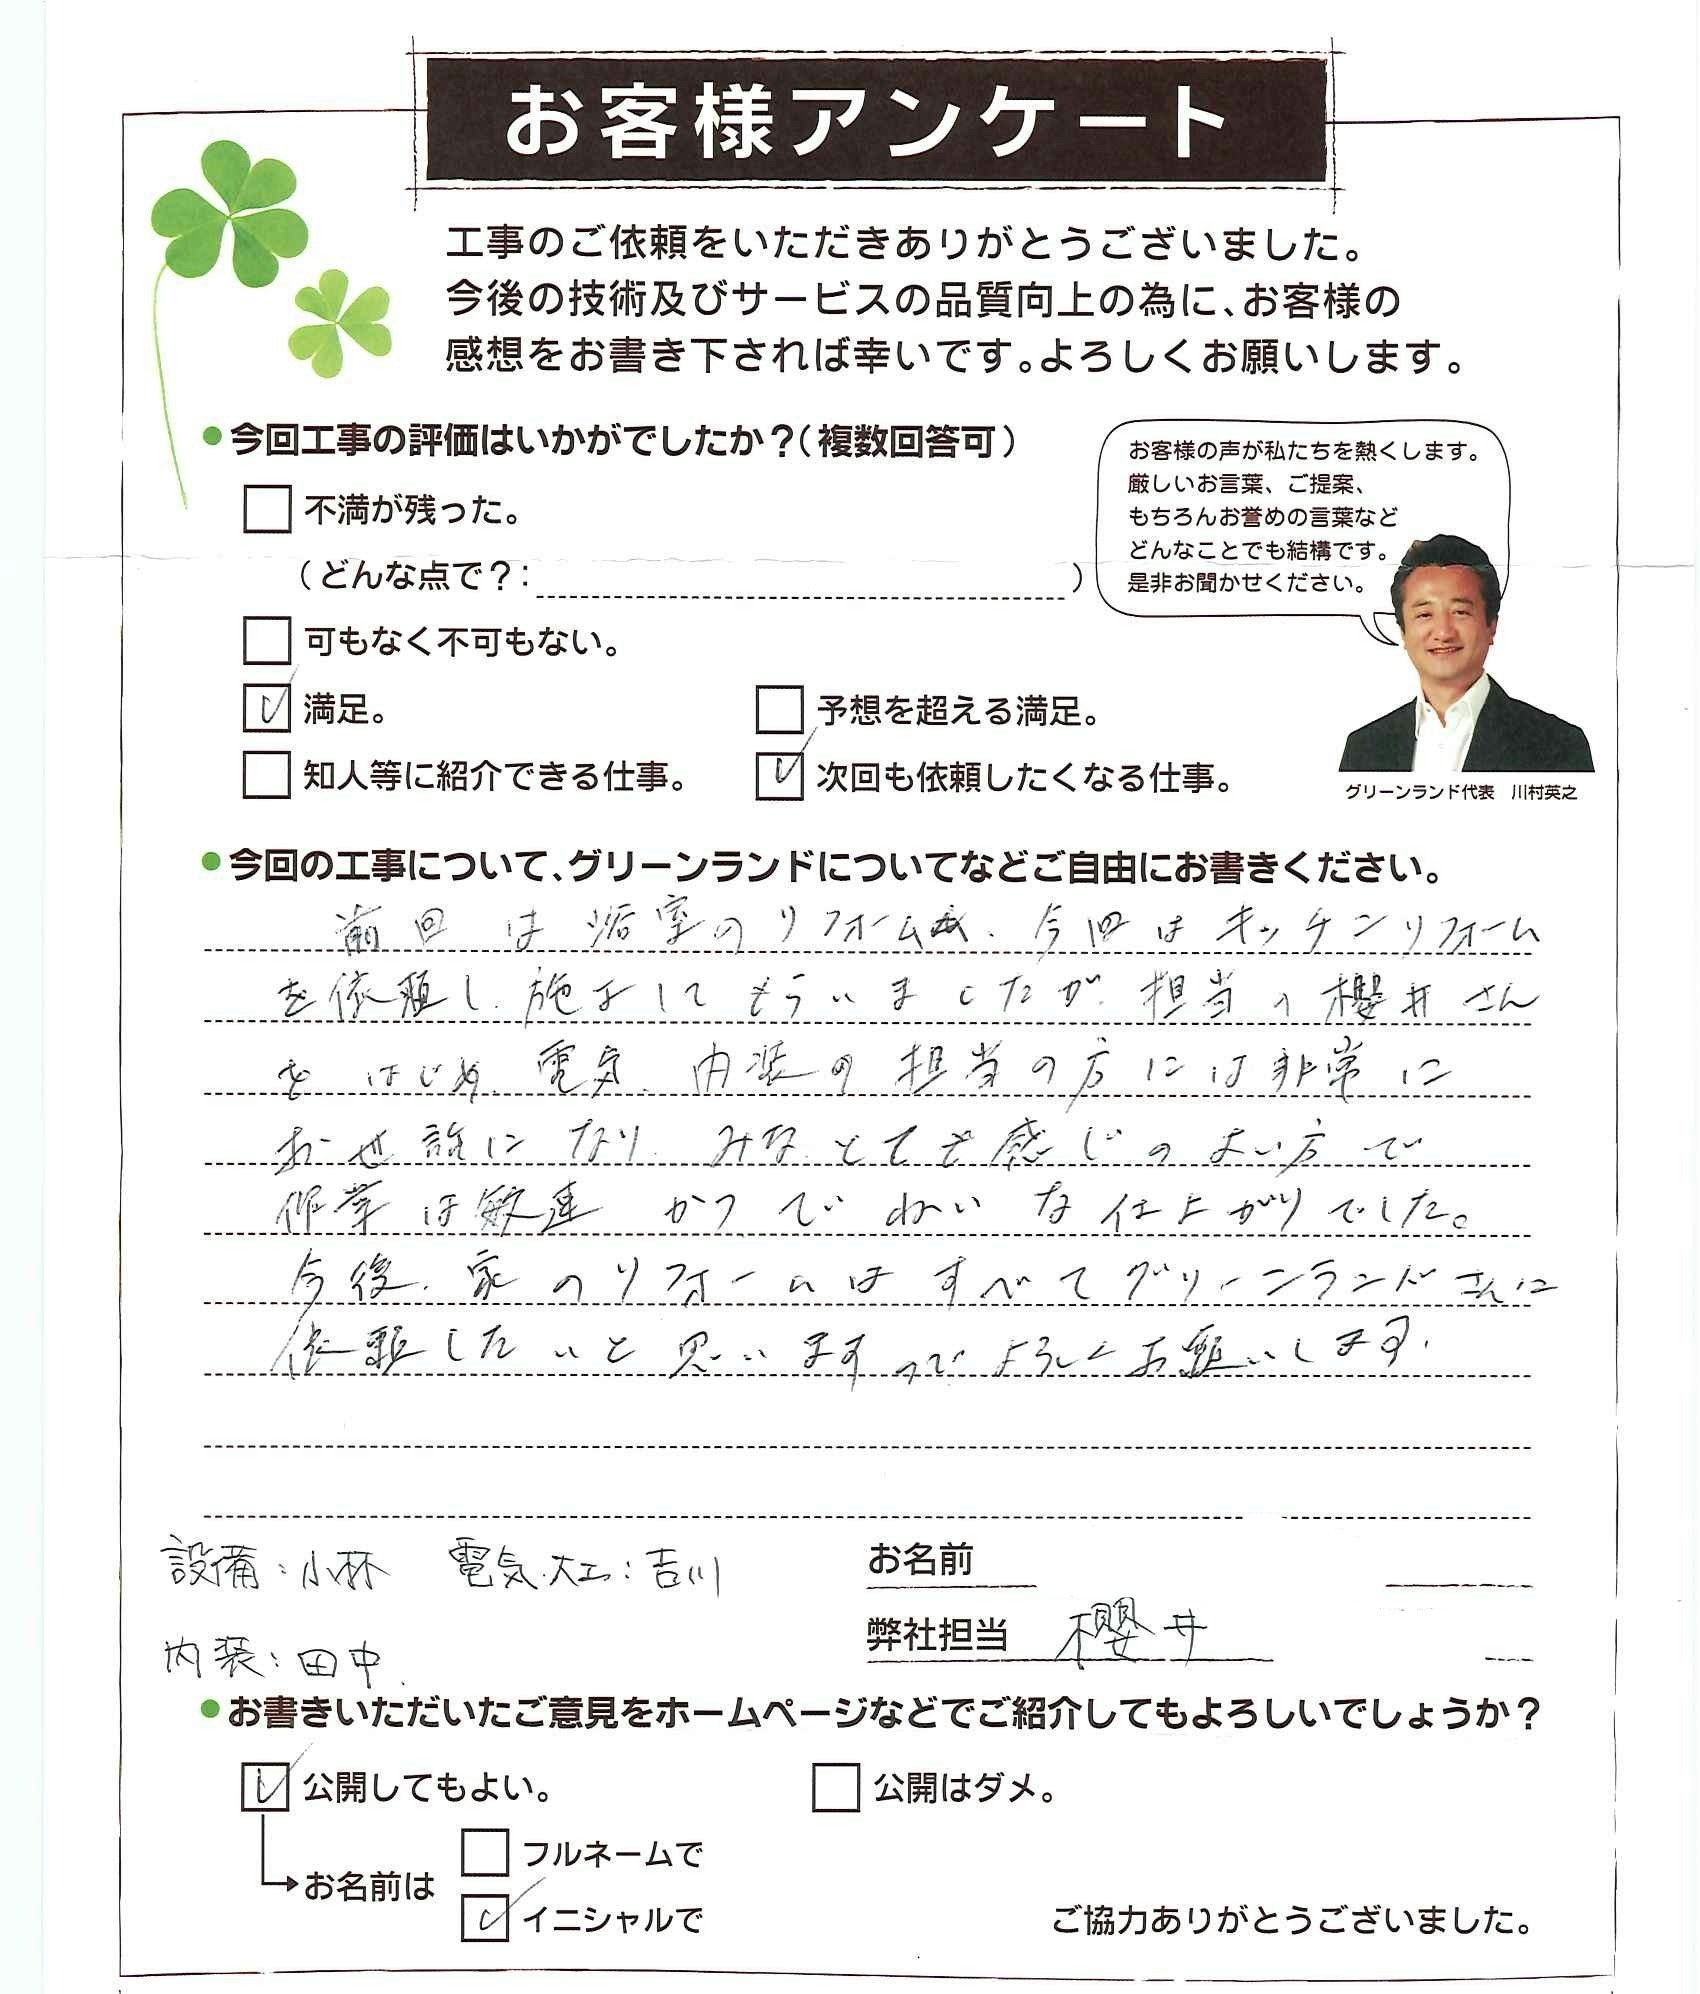 お客様アンケート
工事のご依頼をいただきありがとうございました。
今後の技術及びサービスの品質向上の為に、お客様の
感想をお書き下されば幸いです。よろしくお願いします。
今回工事の評価はいかがでしたか？（複数回答可）
不満が残った。
（どんな点で？： ）
可もなく不可もない。
満足。
予想を超える満足。
知人等に紹介できる仕事。
次回も依頼したくなる仕事。
お客様の声が私たちを熱くします。
厳しいお言葉、ご提案、
もちろんお誉めの言葉など
どんなことでも結構です。
是非お聞かせください。
グリーンランド代表 川村英之
今回の工事について、グリーンランドについてなどご自由にお書きください。
前回は浴室のリフォーム、今回はキッチンリフォーム
を依頼し、施工してもらいましたが、担当の櫻井さん
をはじめ、電気、内装の担当の方には非常に
お世話になり、みなとても感じのよい方で
作業は敏速かつていねいな仕上がりでした。
今後、家のリフォームはすべてグリーンランドさんに
依頼したいと思いますのでよろしくお願いします。
設備：小林 電気.大工：吉川
内装：田中
お名前
弊社担当 櫻井
お書きいただいたご意見をホームページなどでご紹介してもよろしいでしょうか？
公開してもよい。
公開はダメ。
お名前は
フルネームで
イニシャルで
ご協力ありがとうございました。